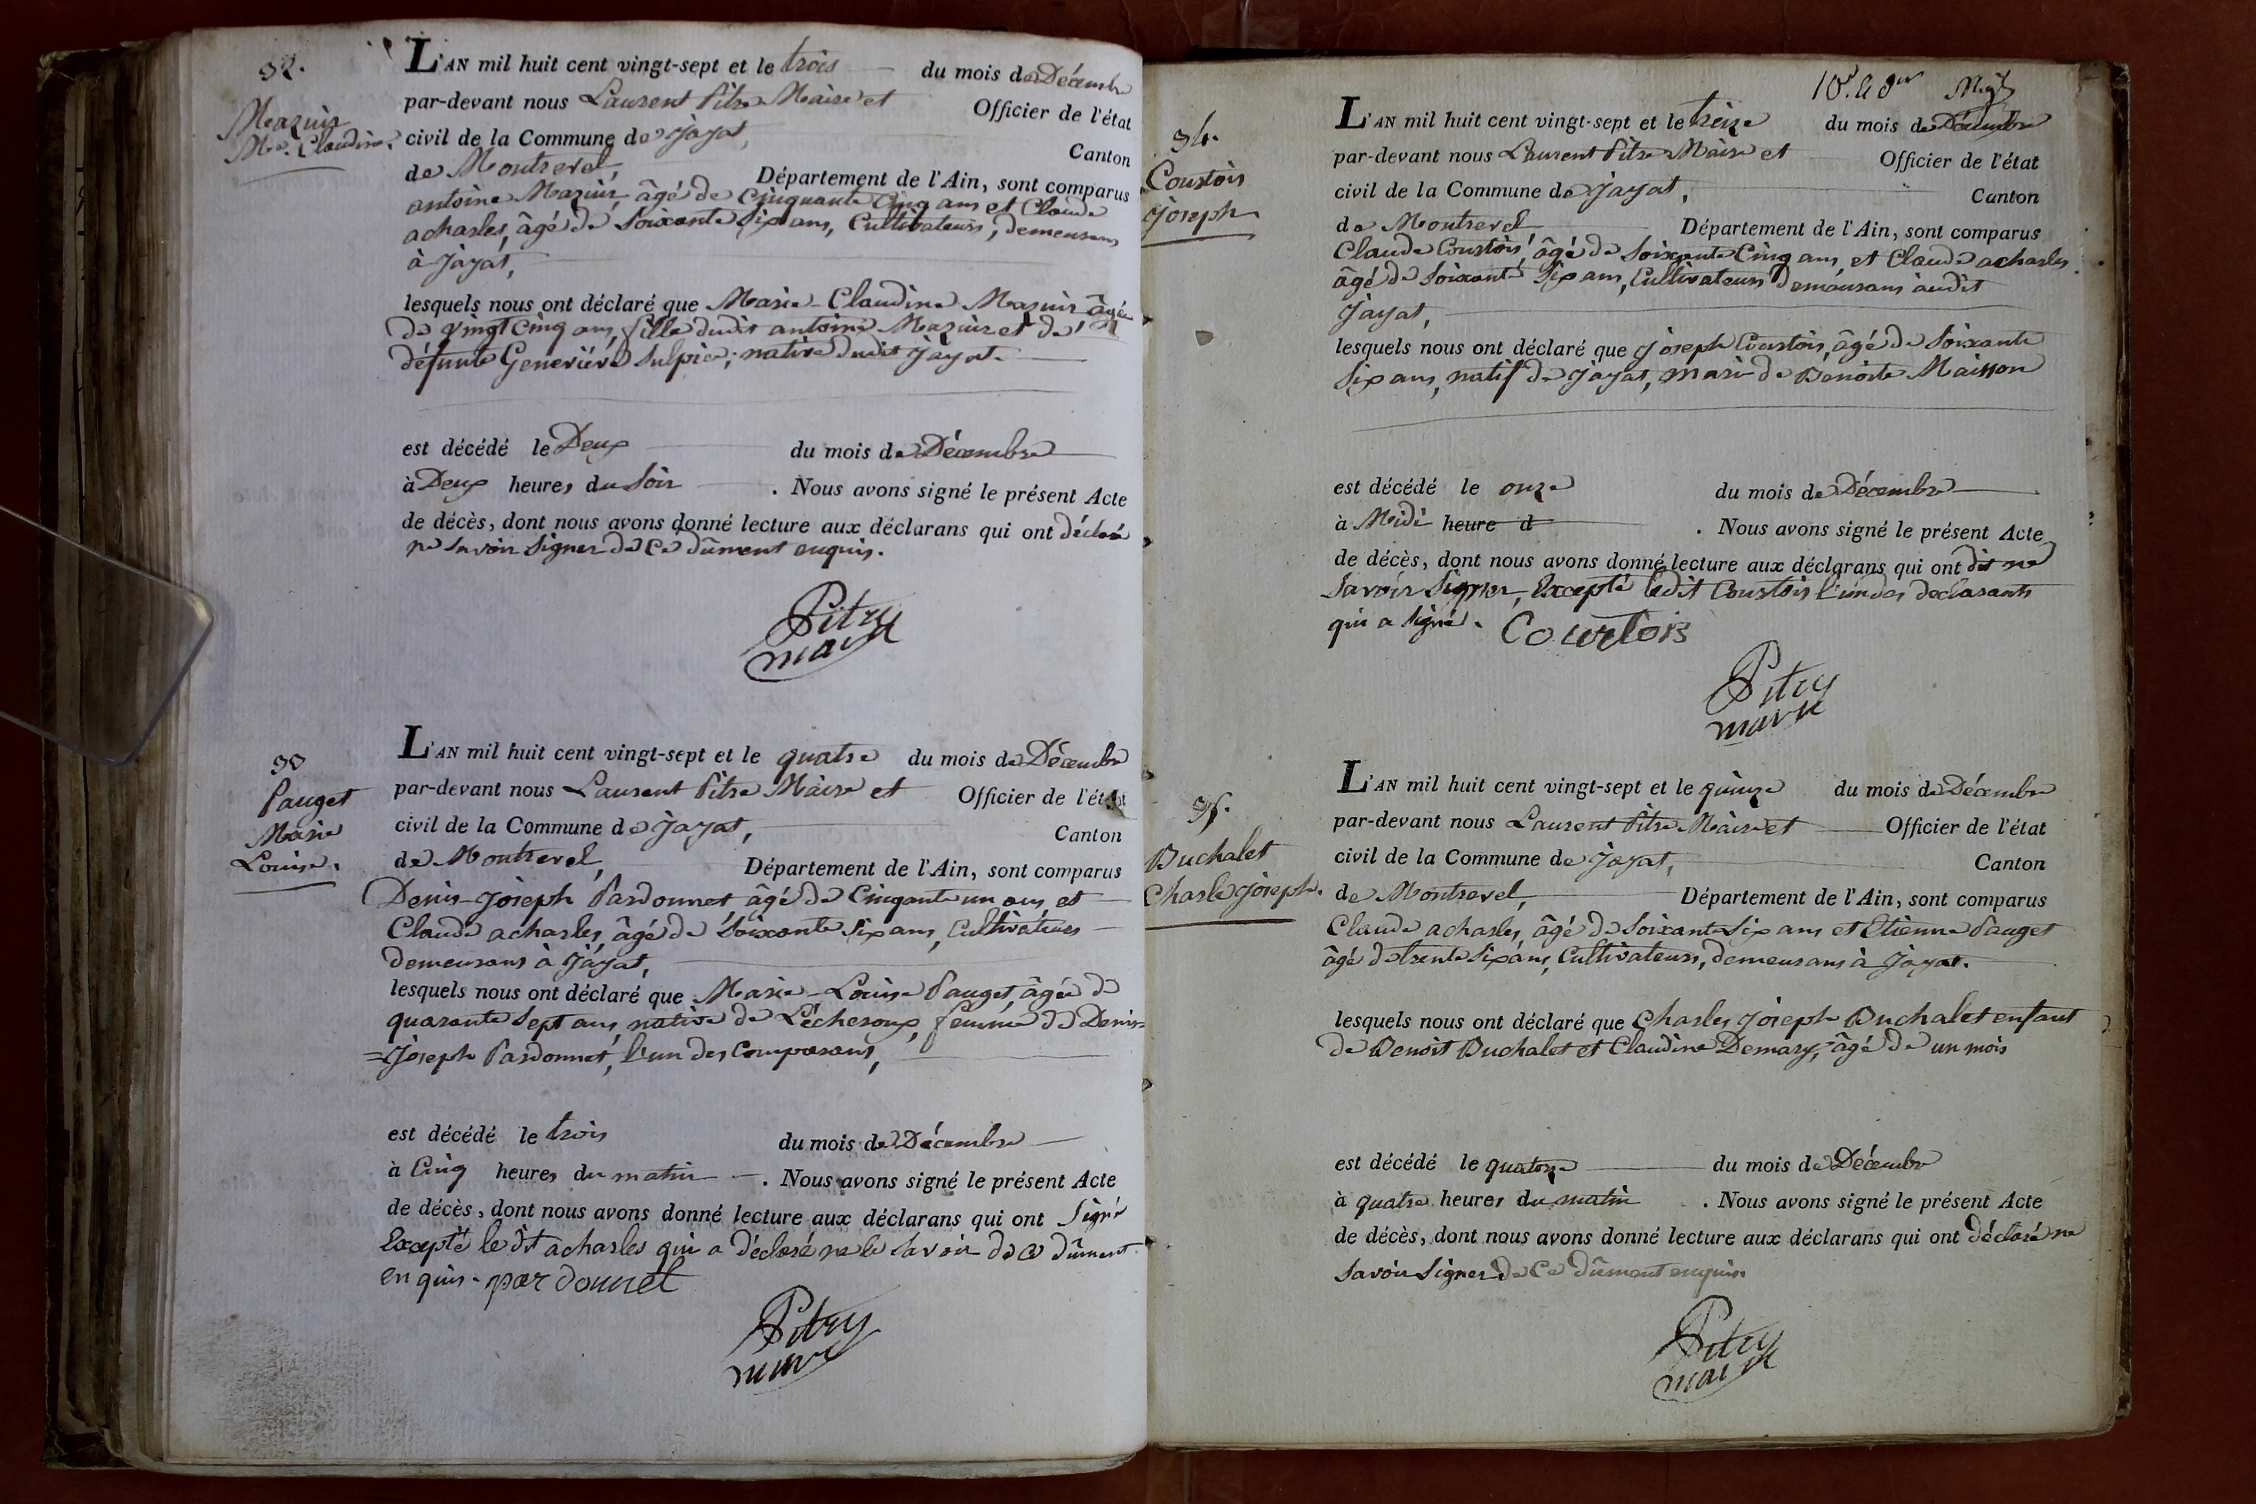 32.
Mazuir
Mie. Claudine.
L'AN mil huit cent vingt-sept et le trois du mois de Décembre
par-devant nous Laurent Pitre Maire et Officier de l'état
civil de la Commune de Jayat, Canton
de Montrevel, Département de l'Ain, sont comparus
antoine Mazuir, âgé de Cinquante Cinq ans et Claude
acharles, âgé de Soixante Six ans, Cultivateurs, demeurans
à Jayat,
lesquels nous ont déclaré que Marie-Claudine Mazuir âgée
de Vingt Cinq ans, fille dudit antoine Mazuir et de
défunte Geneviève Sulpice, native dudit Jayat.
est décédé le Deux du mois de Décembre
à Deux heures du Soir. Nous avons signé le présent Acte
de décès, dont nous avons donné lecture aux déclarans qui ont déclaré
ne Savoir Signer de Ce dûment enquis.
Pitre
maire
33
Pauget
Marie
Louise.
L'AN mil huit cent vingt-sept et le quatre du mois de Décembre
par-devant nous Laurent Pitre Maire et Officier de l'état
civil de la Commune de Jayat, Canton
de Montrevel, Département de l'Ain, sont comparus
Denis-Joseph Pardonnet âgé de Cinquante un ans, et
Claude acharles, âgé de Soixante Six ans, Cultivateurs
demeurans à Jayat,
lesquels nous ont déclaré que Marie-Louise Pauget, âgée de
quarante Sept ans, native de Lécheroux, femme de Denis=
=Joseph Pardonnet, l'un des Comparans,
est décédé le trois du mois de Décembre
à Cinq heures du matin. Nous avons signé le présent Acte
de décès, dont nous avons donné lecture aux déclarans qui ont Signé
Excepté le dit acharles qui a déclaré ne le Savoir de Ce dûment
enquis. pardonnet
Pitre
maire
34.
Courtois
Joseph
L'AN mil huit cent vingt-sept et le treize du mois de Décembre
par-devant nous Laurent Pitre Maire et Officier de l'état
civil de la Commune de Jayat, Canton
de Montrevel Département de l'Ain, sont comparus
Claude Courtois, âgé de Soixante Cinq ans, et Claude acharles
âgé de Soixante Six ans, Cultivateurs demeurans audit
Jayat,
lesquels nous ont déclaré que Joseph Courtois, âgé de Soixante
Six ans, natif de Jayat, mari de Benoite Maisson
est décédé le onze du mois de Décembre
à Midi heure d. Nous avons signé le présent Acte
de décès, dont nous avons donné lecture aux déclarans qui ont dit ne
Savoir Signer, Excepté ledit Courtois l'un des declarants
qui a Signé. Courtois
Pitre
maire
35.
Buchalet
Charle Joseph.
L'AN mil huit cent vingt-sept et le quinze du mois de Décembre
par-devant nous Laurent Pitre Maire et Officier de l'état
civil de la Commune de Jayat, Canton
de Montrevel, Département de l'Ain, sont comparus
Claude acharles, âgé de Soixante Six ans et Etienne Pauget
âgé de trente Six ans, Cultivateurs, demeurans à Jayat.
lesquels nous ont déclaré que Charles Joseph Buchalet enfant
de Benoit Buchalet et Claudine Demary, âgé de un mois
est décédé le quatorze du mois de Décembre
à quatre heures du matin. Nous avons signé le présent Acte
de décès, dont nous avons donné lecture aux déclarans qui ont déclaré ne
Savoir Signer de Ce dûment enquis.
Pitre
maire